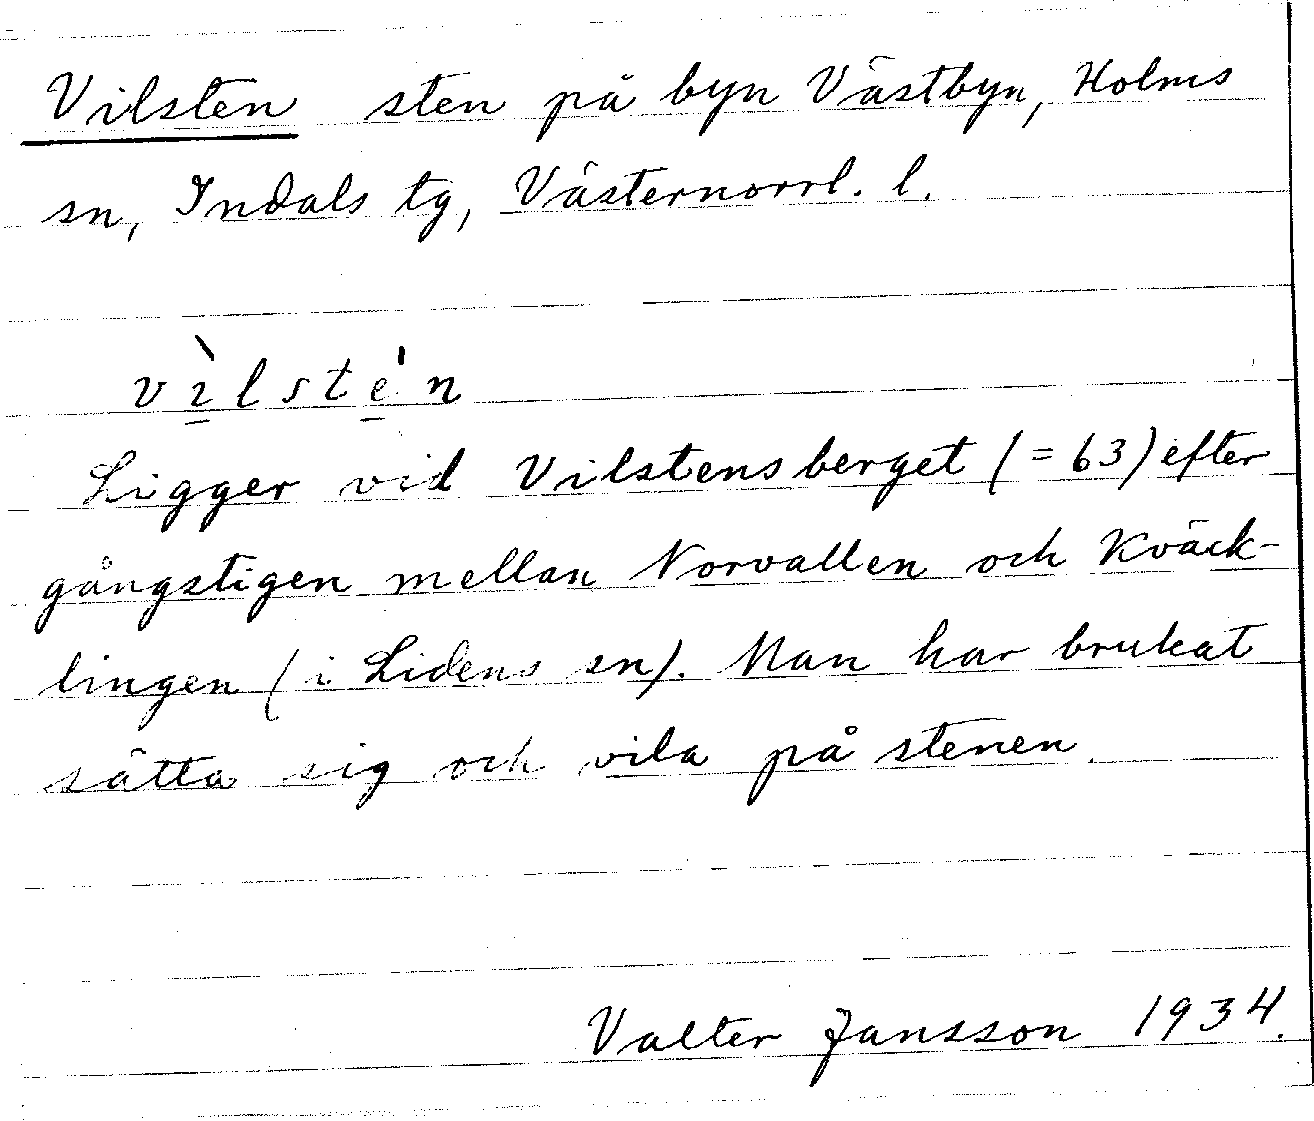 Vilsten sten på byn Västbyn, Holms
sn, Indals tg, Västernorrl. l.
vı̱̀lste̱ʹn
Ligger vid Vilstensberget (=63) efter
gångstigen mellan Norvallen och Kväck-
lingen (i Lidens sn). Man har brukat
sätta sig och vila på stenen.
Valter Jansson 1934.